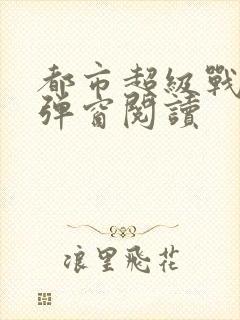 都市超級戰
彈窗閱讀
浪里飛花